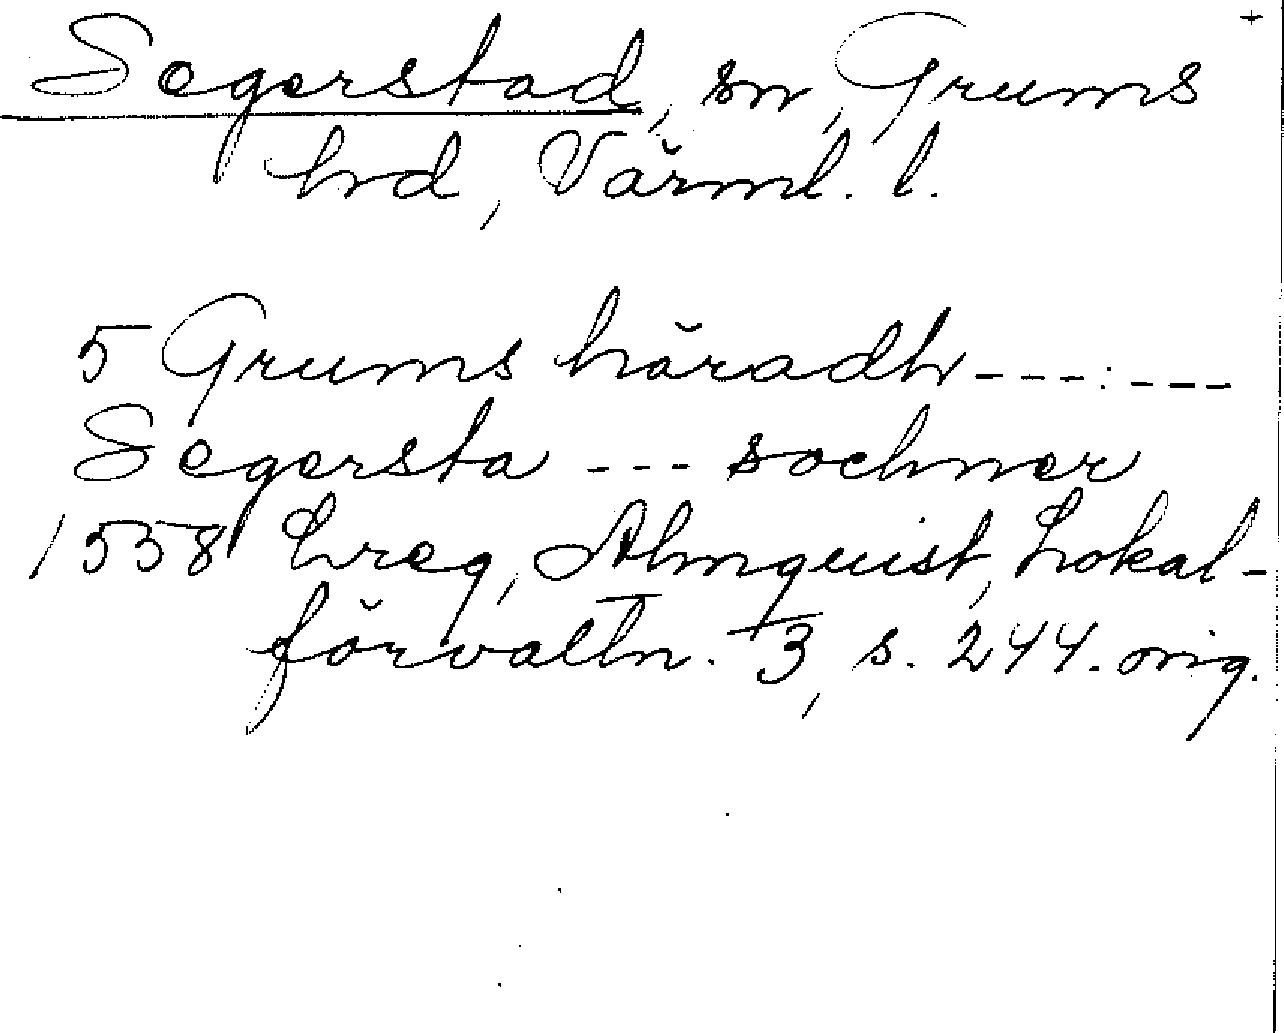 +
Segerstad, sn, Grums
hrd, Värml. l.
5 Grums häradh ---:---
Segersta --- sochner
1558 Lreg, Almquist, Lokal-
förvaltn. 3, s. 244. orig.